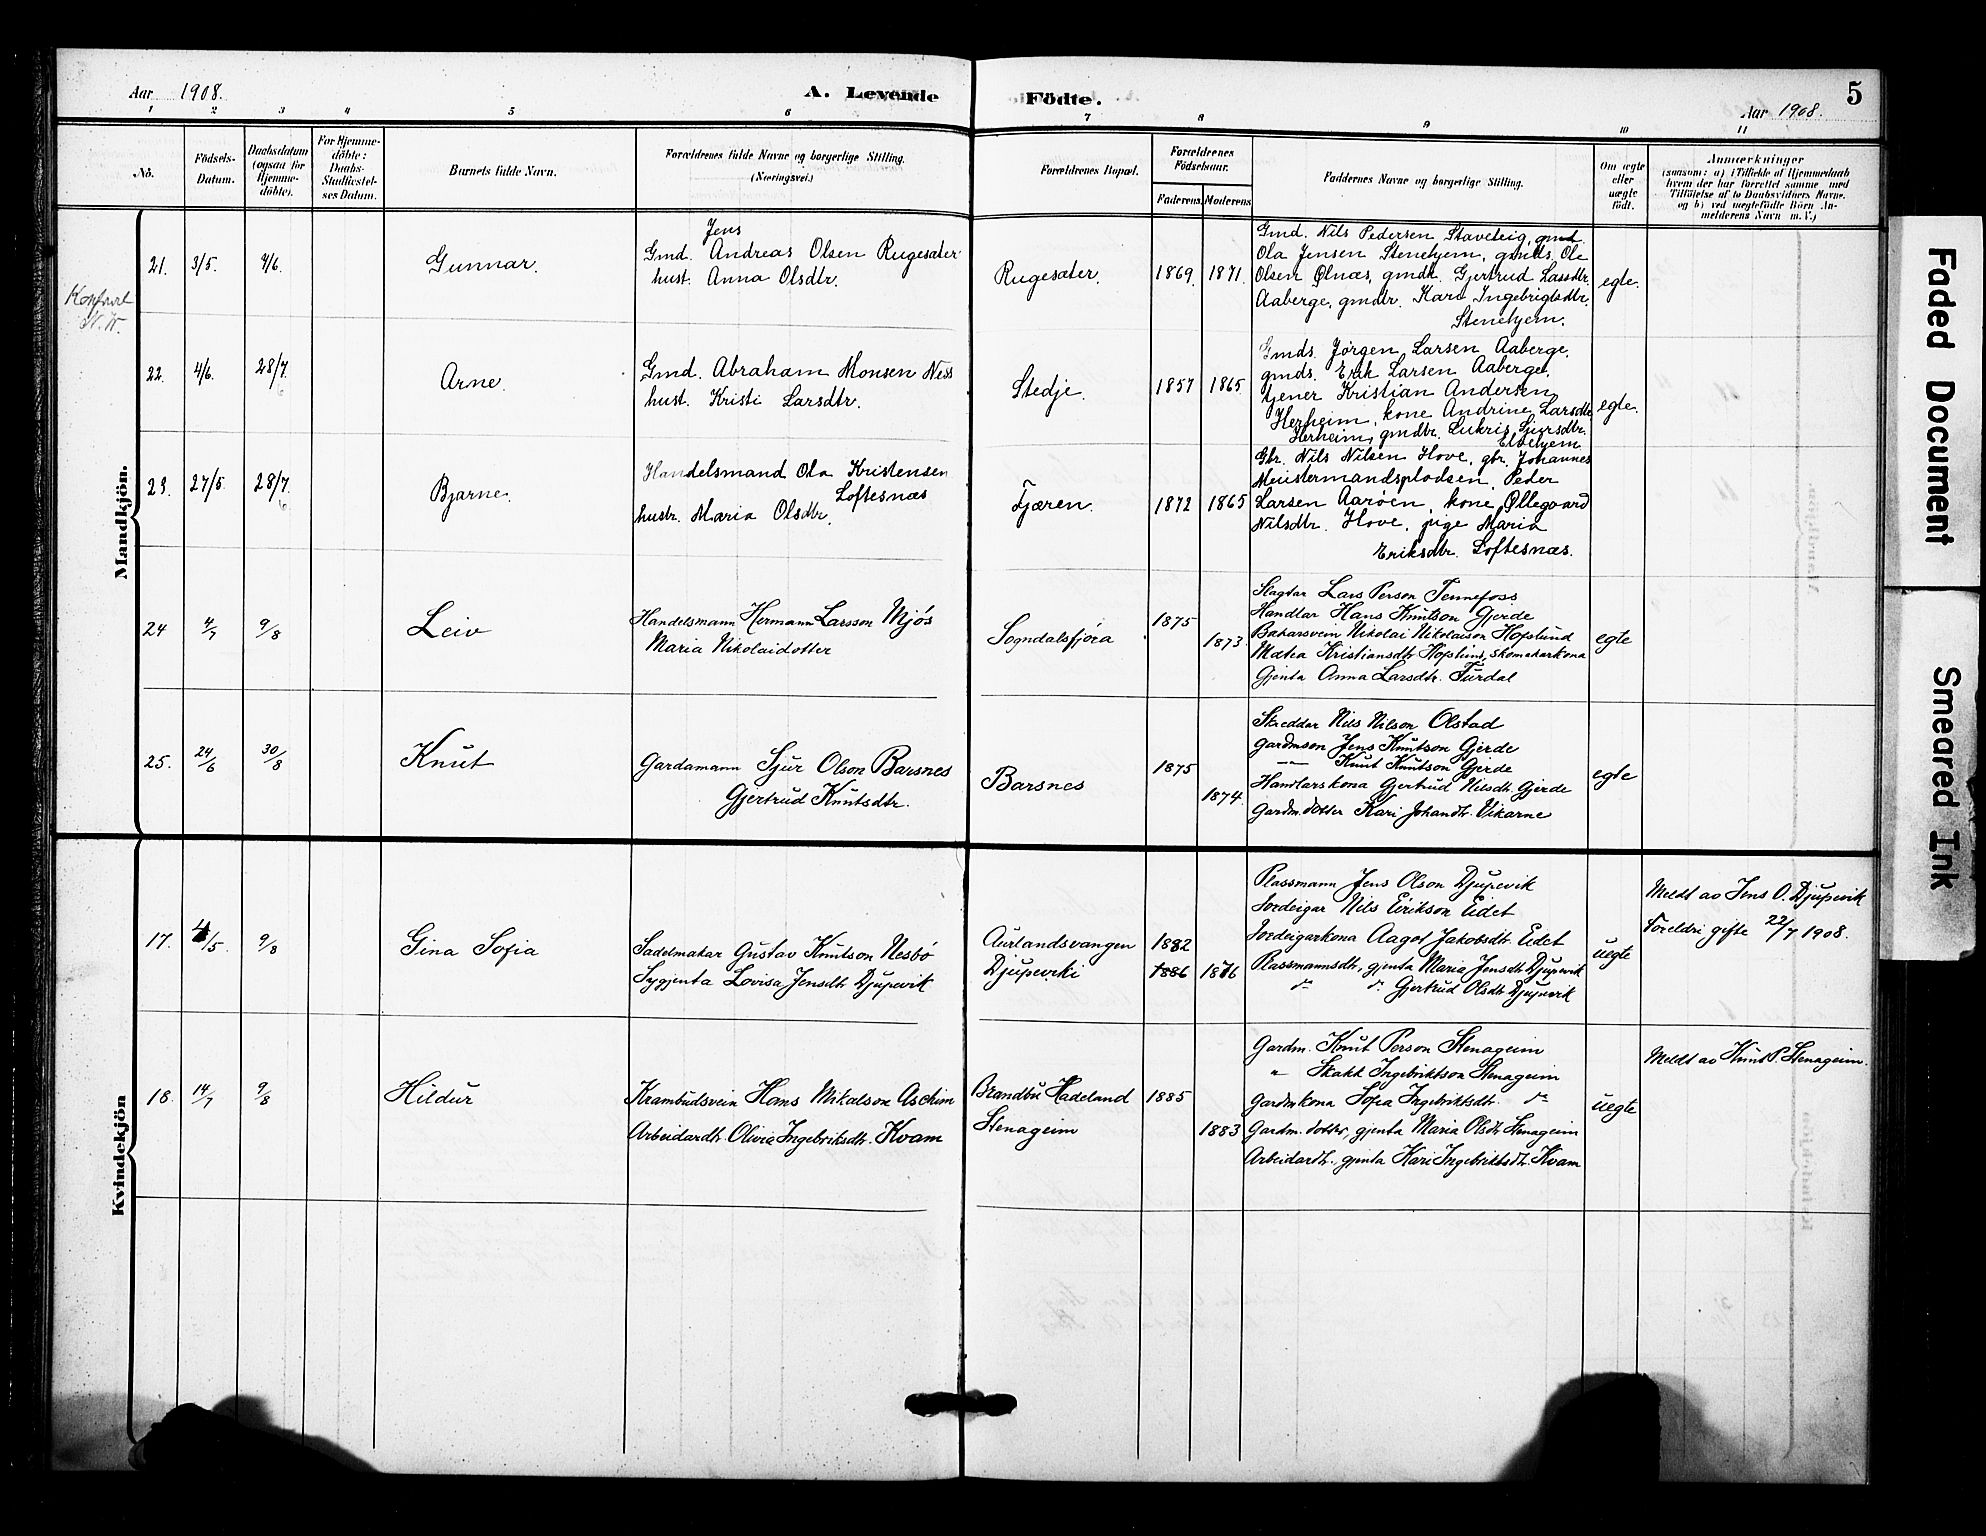 Aar 1908.
A. Levende Födte.
Aar 1908.
5
1 2 3 4 5 6 7 8 9 10 11
No.
Födsels-
Datum.
Daabsdatum
(ogsaa for
Hjemme-
döbte).
For Hjemme-
döbte:
Daabs-
Stadfæstel-
ses Datum.
Barnets fulde Navn.
Forældrenes fulde Navne og borgerlige Stilling.
(Næringsvei.)
Forældrenes Bopæl.
Forældrenes
Födselsaar.
Faderens Moderens
Faddernes Navne og borgerlige Stilling.
Om ægte
eller
uægte
födt.
Anmærkninger
(saasom: a) i Tilfælde af Hjemmedaab
hvem der har forrettet samme med
Tilföielse af to Daabsvidners Navne.
og b) ved uægtefödte Börn An-
melderens Navn m. V.)
Mandkjön.
21. 3/5. 4/6. Gunnar.
Jens
Gmd. Andreas Olsen Rugesæter
hust. Anna Olsdtr.
Rugesæter. 1869. 1871.
Gmd. Nils Pedersen Staveteig, gmd.
Ola Jensen Stenehjem, gmds. Ole
Olsen Ølnæs, gmdk. Gjertrud Lassdtr.
Aaberge, gmdtr. Kari Ingebrigtsdtr.
Stenehjem.
egte.
22. 4/6. 28/7. Arne.
6
Gmd. Abraham Monsen Ness
hust. Kristi Larsdtr.
Stedje. 1857 1865
Gmds. Jørgen Larsen Aaberge.
gmds. Erik Larsen Aaberge,
tjener Kristian Andersen
Herheim, kone Andrine Larsdtr
Herheim, gmdtr. Lukris Sjursdtr.
Eldehjem
egte.
23. 27/5. 28/7. Bjarne.
6
Handelsmand Ola Kristensen
Loftesnæs
hustr. Maria Olsdtr.
Fjæren. 1872 1865
Gbr. Nils Nilsen Hove, gbr. Johannes
Meistermandspladsen, Peder
Larsen Aarøen, kone Øllegaard
Nilsdtr. Hove, pige Maria
Eriksdtr. Loftesnæs.
24 4/7 9/8 Leiv
Handelsmann Hermann Larsson Mjøs
Maria Nikolaidotter
Sogndalsfjøra 1875 1873
Slagtar Lars Person Tennefoss
Handlar Hans Knutson Gjerde
Bakarsvein Nikolai Nikolaison Hofslund
Matia Kristiansdtr. Hofslund, skomakarkona
Gjenta Anna Larsdtr. Furdal
egte
25. 24/6 30/8 Knut
Gardamann Sjur Olson Barsnes
Gjertrud Knutsdtr.
Barsnes 1875 1874
Skreddar Nils Nilson Olstad
gardmson Jens Knutson Gjerde
—"— Knut Knutson Gjerde
Handlarskona Gjertrud Nilsdtr. Gjerde
Gardm. dotter Kari Johandtr. Vikarne
egte
Kvindekjön
17. 4/5. 9/8 Gina Sofia
Sadelmakar Gustav Knutson Nesbö
Sygjenta Lovisa Jensdtr Djupevik
Aurlandsvangen 1882
Djupeviki 1886 1876
Plassmann Jens Olson Djupevik
Jordeigar Nils Eirikson Eidet
Jordeigarkona Aagot Jakobsdtr. Eidet
Plassmannsdtr, gjenta Maria Jensdtr Djupevik
do do Gjertrud Olsdtr Djupevik
uegte
Meldt av Jens O. Djupevik
Foreldri gifte 22/7 1908.
18. 14/7 9/8 Hildur
Krambudsvein Hans Mikalson Aschim
Arbeidardtr. Olivia Ingebriktsdtr. Kvam
Brandbu Hadeland 1885
Stenageim 1883
Gardm. Knut Person Stenageim
" Skakt Ingebriktson Stenageim
Gardmkona Sofia Ingebriktsdtr. do
Gardm. dotter, gjenta Maria Olsdtr Stenageim
Arbeidardtr. gjenta Kari Ingebriktsdtr. Kvam
uegte
Meldt av Knut P. Stenageim.
Faded Document
Smeared Ink